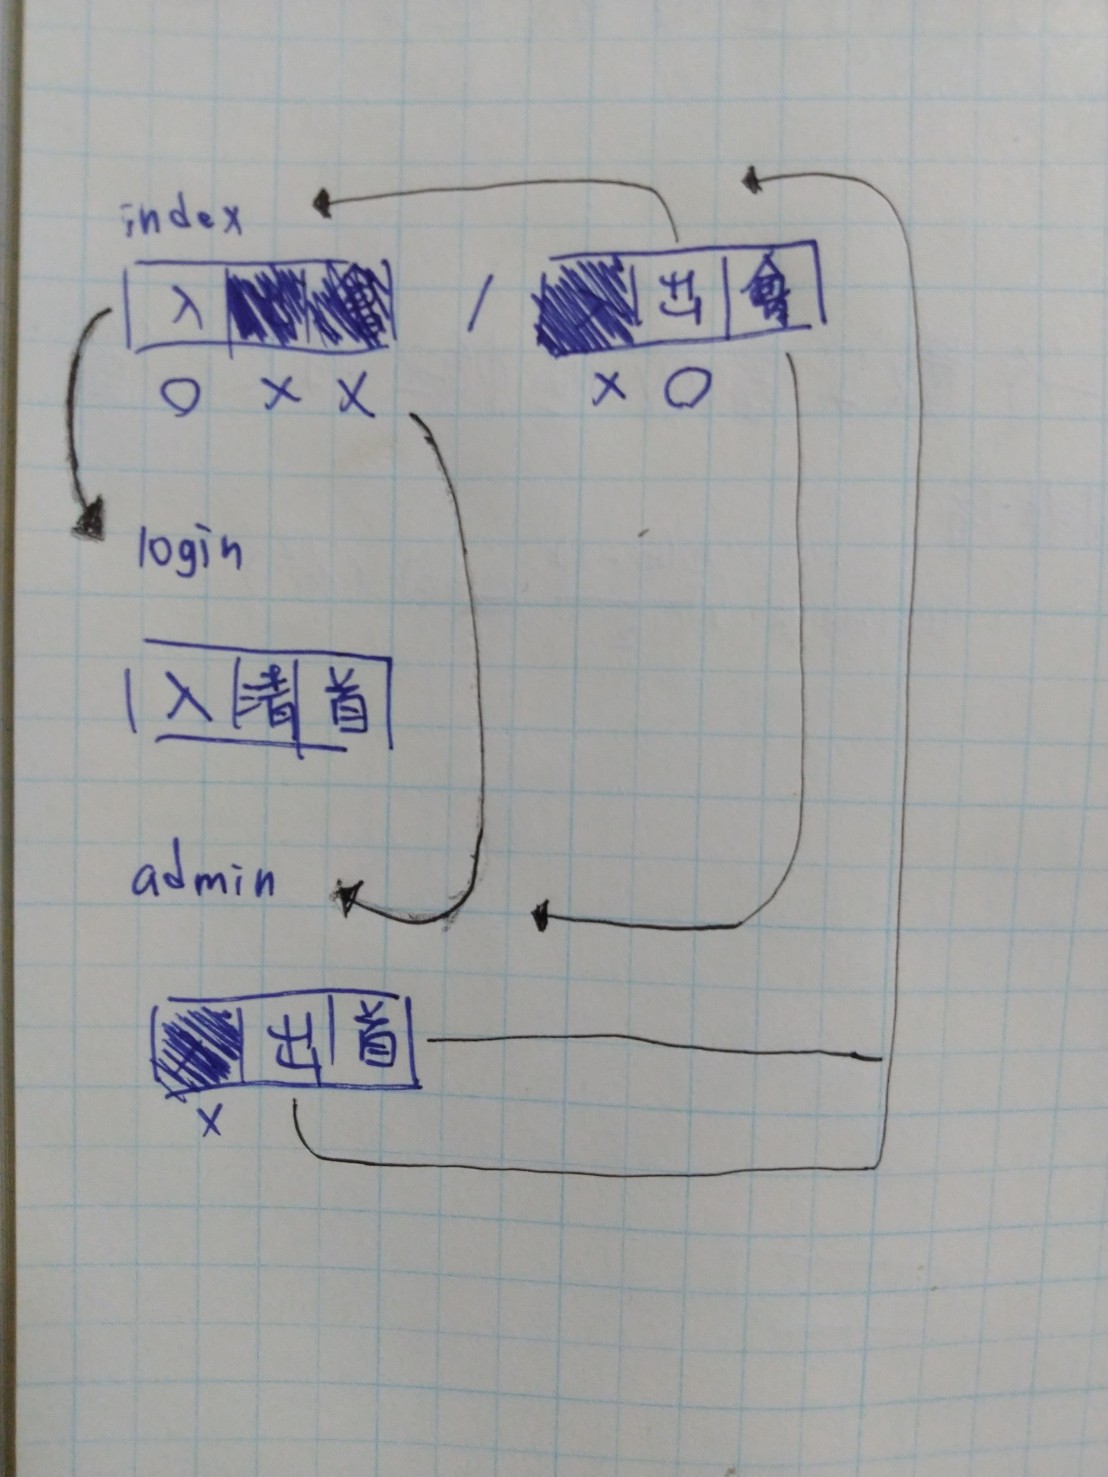 index
入 / 出 會
O X X X O
login
入 清 首
admin
出 首
X